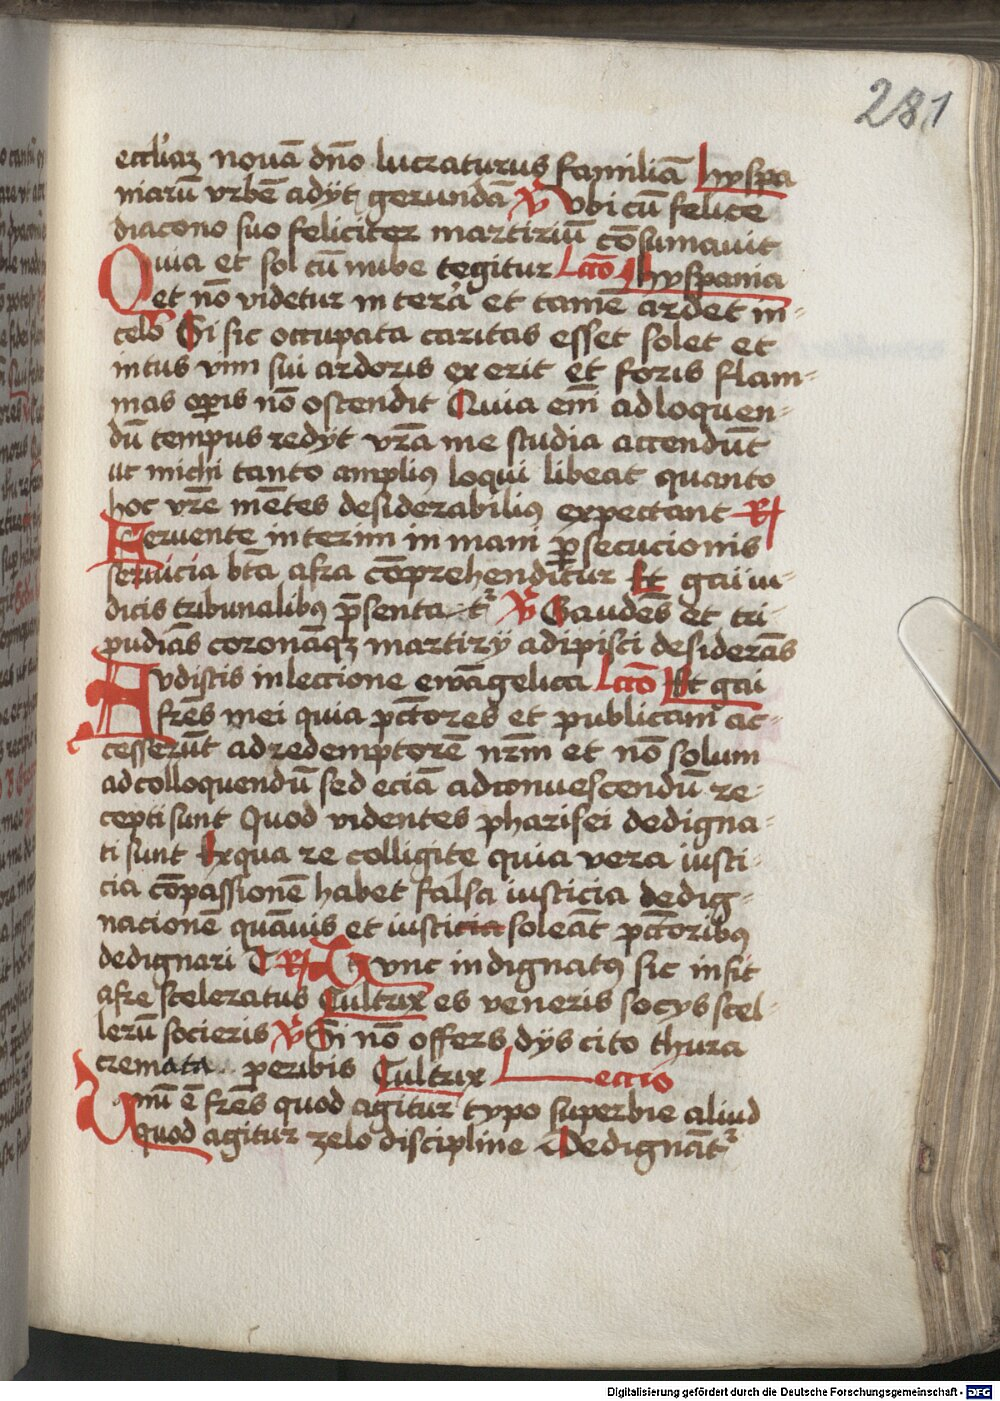 281
eccl'iaꝫ novā dn̄o lucraturus familiā hyspa
niarū vrbē adijt gerundā ℣ Vbi cū felice
diacono suo feliciter martiriū cōsumauit
Quia et sol cū nube tegitur Lcc̄o hyspania
et nō videtur in terra et tamē ardet in-
celo Si sic occupata caritas esset solet et
intus vim sui ardoris exerit et foris flam-
mas op̄is nō ostendit Quia em̄ ad loquen-
dū tempus redijt vr̄a me studia accendūt
ut michi tanto ampliꝰ loqui libeat quanto
hoc vr̄e mētes desiderabiliꝰ expectant ℟
Feruente interim in mani ꝑsecucionis
seruicia bt̄a afra cōprehenditur Et gaii iu-
dicis tribunalibꝰ p̄senta tr̄ ℣ Gaudēs et tri-
pudiās coronāqꝫ martirij adipisci desiderās
Audistis in lectione ewāgelica Lcc̄o Et gai
fr̄es mei quia pctōres et publicani ac-
cesserūt ad redemptorē nr̄m et nō solum
ad colloquendū sed eciā ad conuescendū re-
cepti sunt Quod videntes pharisei dedigna-
ti sunt Ex qua re colligite quia vera iusti-
cia cōpassionē habet falsa iusticia dedig-
nacionē quāuis et iusticia soleāt pctōribꝰ
dedignari ℟ Tunc indignatꝰ sic insit
afre sceleratus Cultrix es veneris socijs scel-
lerū socieris ℣ Si nō offers dijs cito thura
cremata peribis Cultrix Leccio
Vnū ē fr̄es quod agitur typo superbie aliud
quod agitur zelo discipline Dedignāt᷑
Digitalisierung gefördert durch die Deutsche Forschungsgemeinschaft - DFG